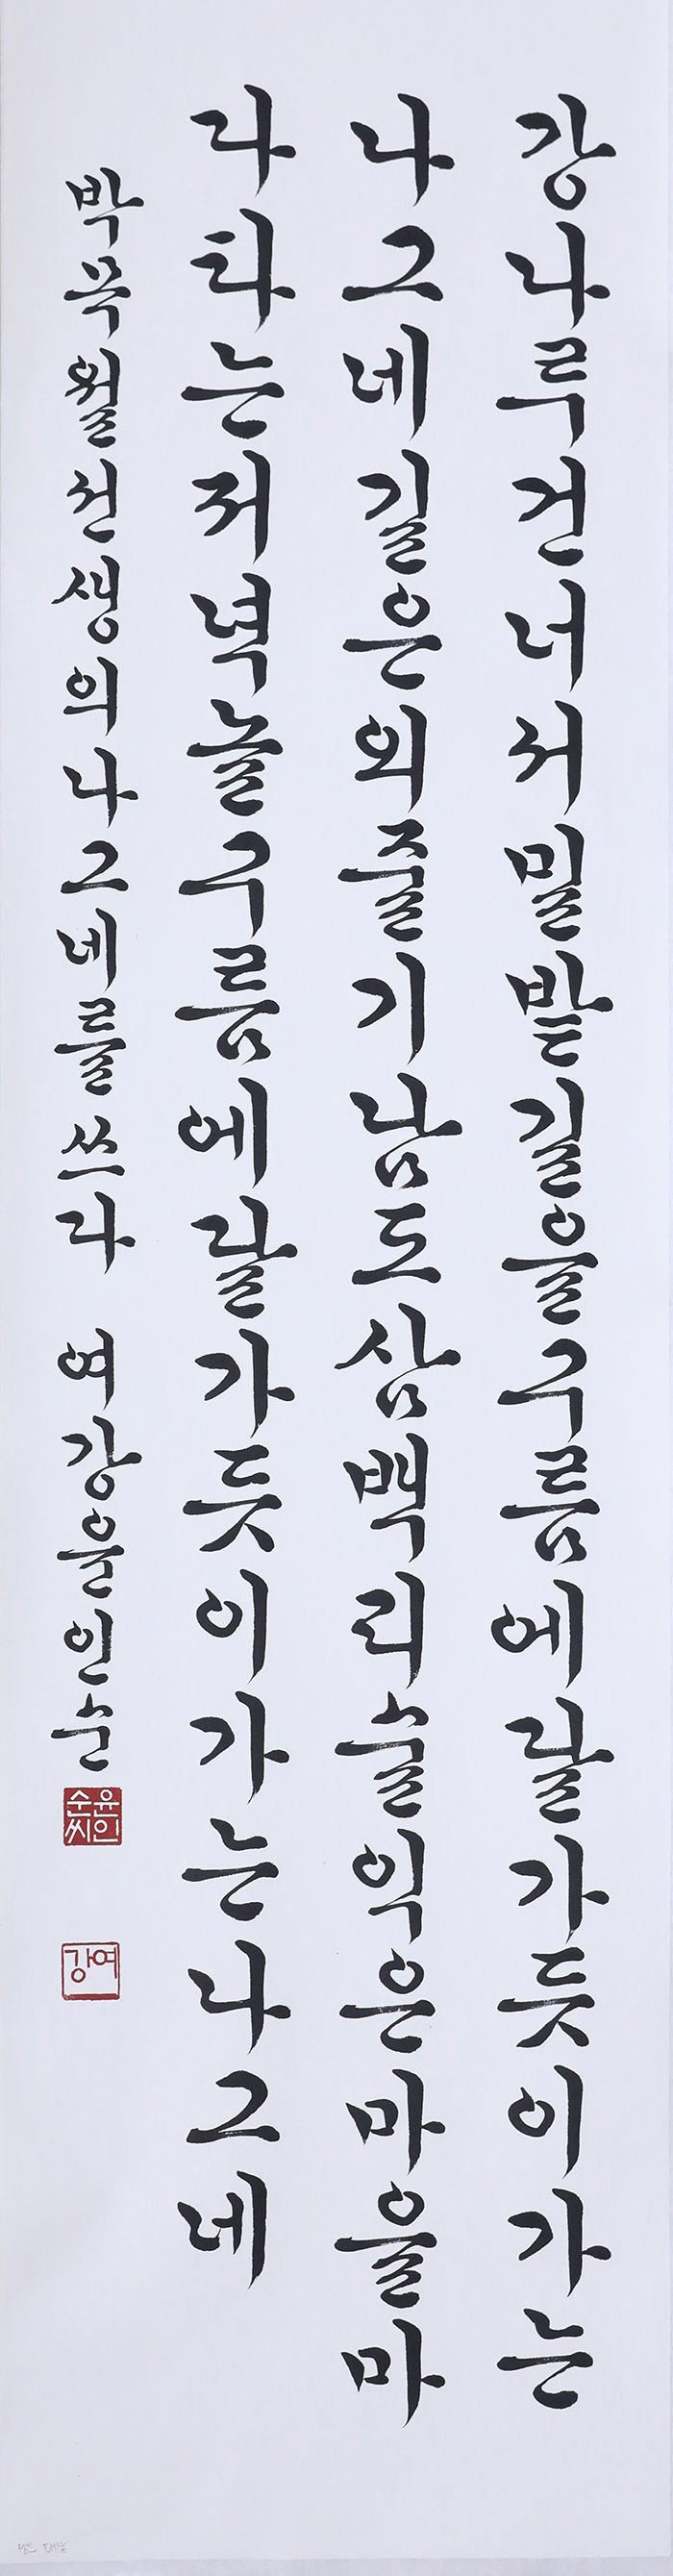 강나루건너서밀밭길을구름에달가듯이가는
나그네길은외줄기남도삼백리술익은마을마
다타는저녁놀구름에달가듯이가는나그네
박목월선생의나그네를쓰다 여강윤인순
윤인
순씨
여강